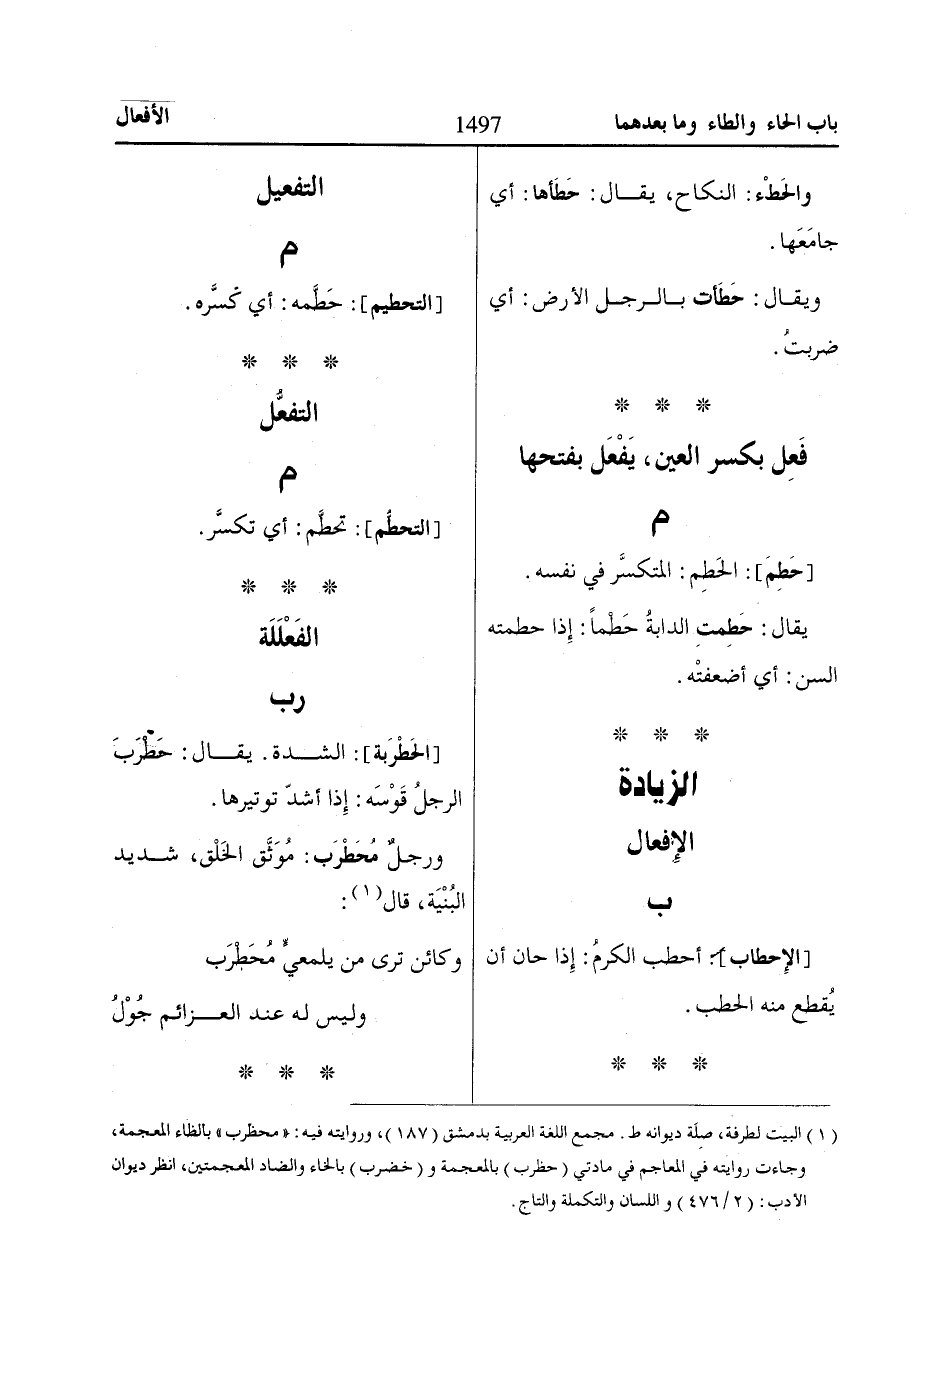 باب الحاء والطاء وما بعدهما
1497
الأفعال
والحَطْء: النكاح، يقال: حَطَأها: أي
جامَعَها.
ويقال: حَطَأت بالرجل الأرض: أي
ضربتُ.
* * *
فَعِل بكسر العين، يَفْعَل بفتحها
م
[حَطِمَ]: الحَطِم: المتكسَّر في نفسه.
يقال: حَطِمتِ الدابةُ حَطْماً: إذا حطمته
السن: أي أضعفتْه.
* * *
الزيادة
الإفعال
ب
[الإحطاب]: أحطب الكرمُ: إذا حان أن
يُقطع منه الحطب.
* * *
التفعيل
م
[التحطيم]: حَطَّمه: أي كسَّره.
* * *
التفعُّل
م
[التحطُّم]: تحطَّم: أي تكسَّر.
* * *
الفَعْلَلَة
رب
[الحَطْرَبة]: الشدة. يقال: حَطْرَبَ
الرجلُ قَوْسَه: إذا أشدّ توتيرها.
ورجلٌ مُحَطْرَب: مُوَثَّق الخَلْق، شديد
البُنْيَة، قال(١):
وكائن ترى من يلمعيٍّ مُحَطْرَب
وليس له عند العزائم جُوْلُ
* * *
(١) البيت لطرفة، صلة ديوانه ط. مجمع اللغة العربية بدمشق (١٨٧)، وروايته فيه: «محظرب» بالظاء المعجمة،
وجاءت روايته في المعاجم في مادتي (حظرب) بالمعجمة و (خضرب) بالخاء والضاد المعجمتين، انظر ديوان
الأدب: (٢/٤٧٦) و اللسان والتكملة والتاج.